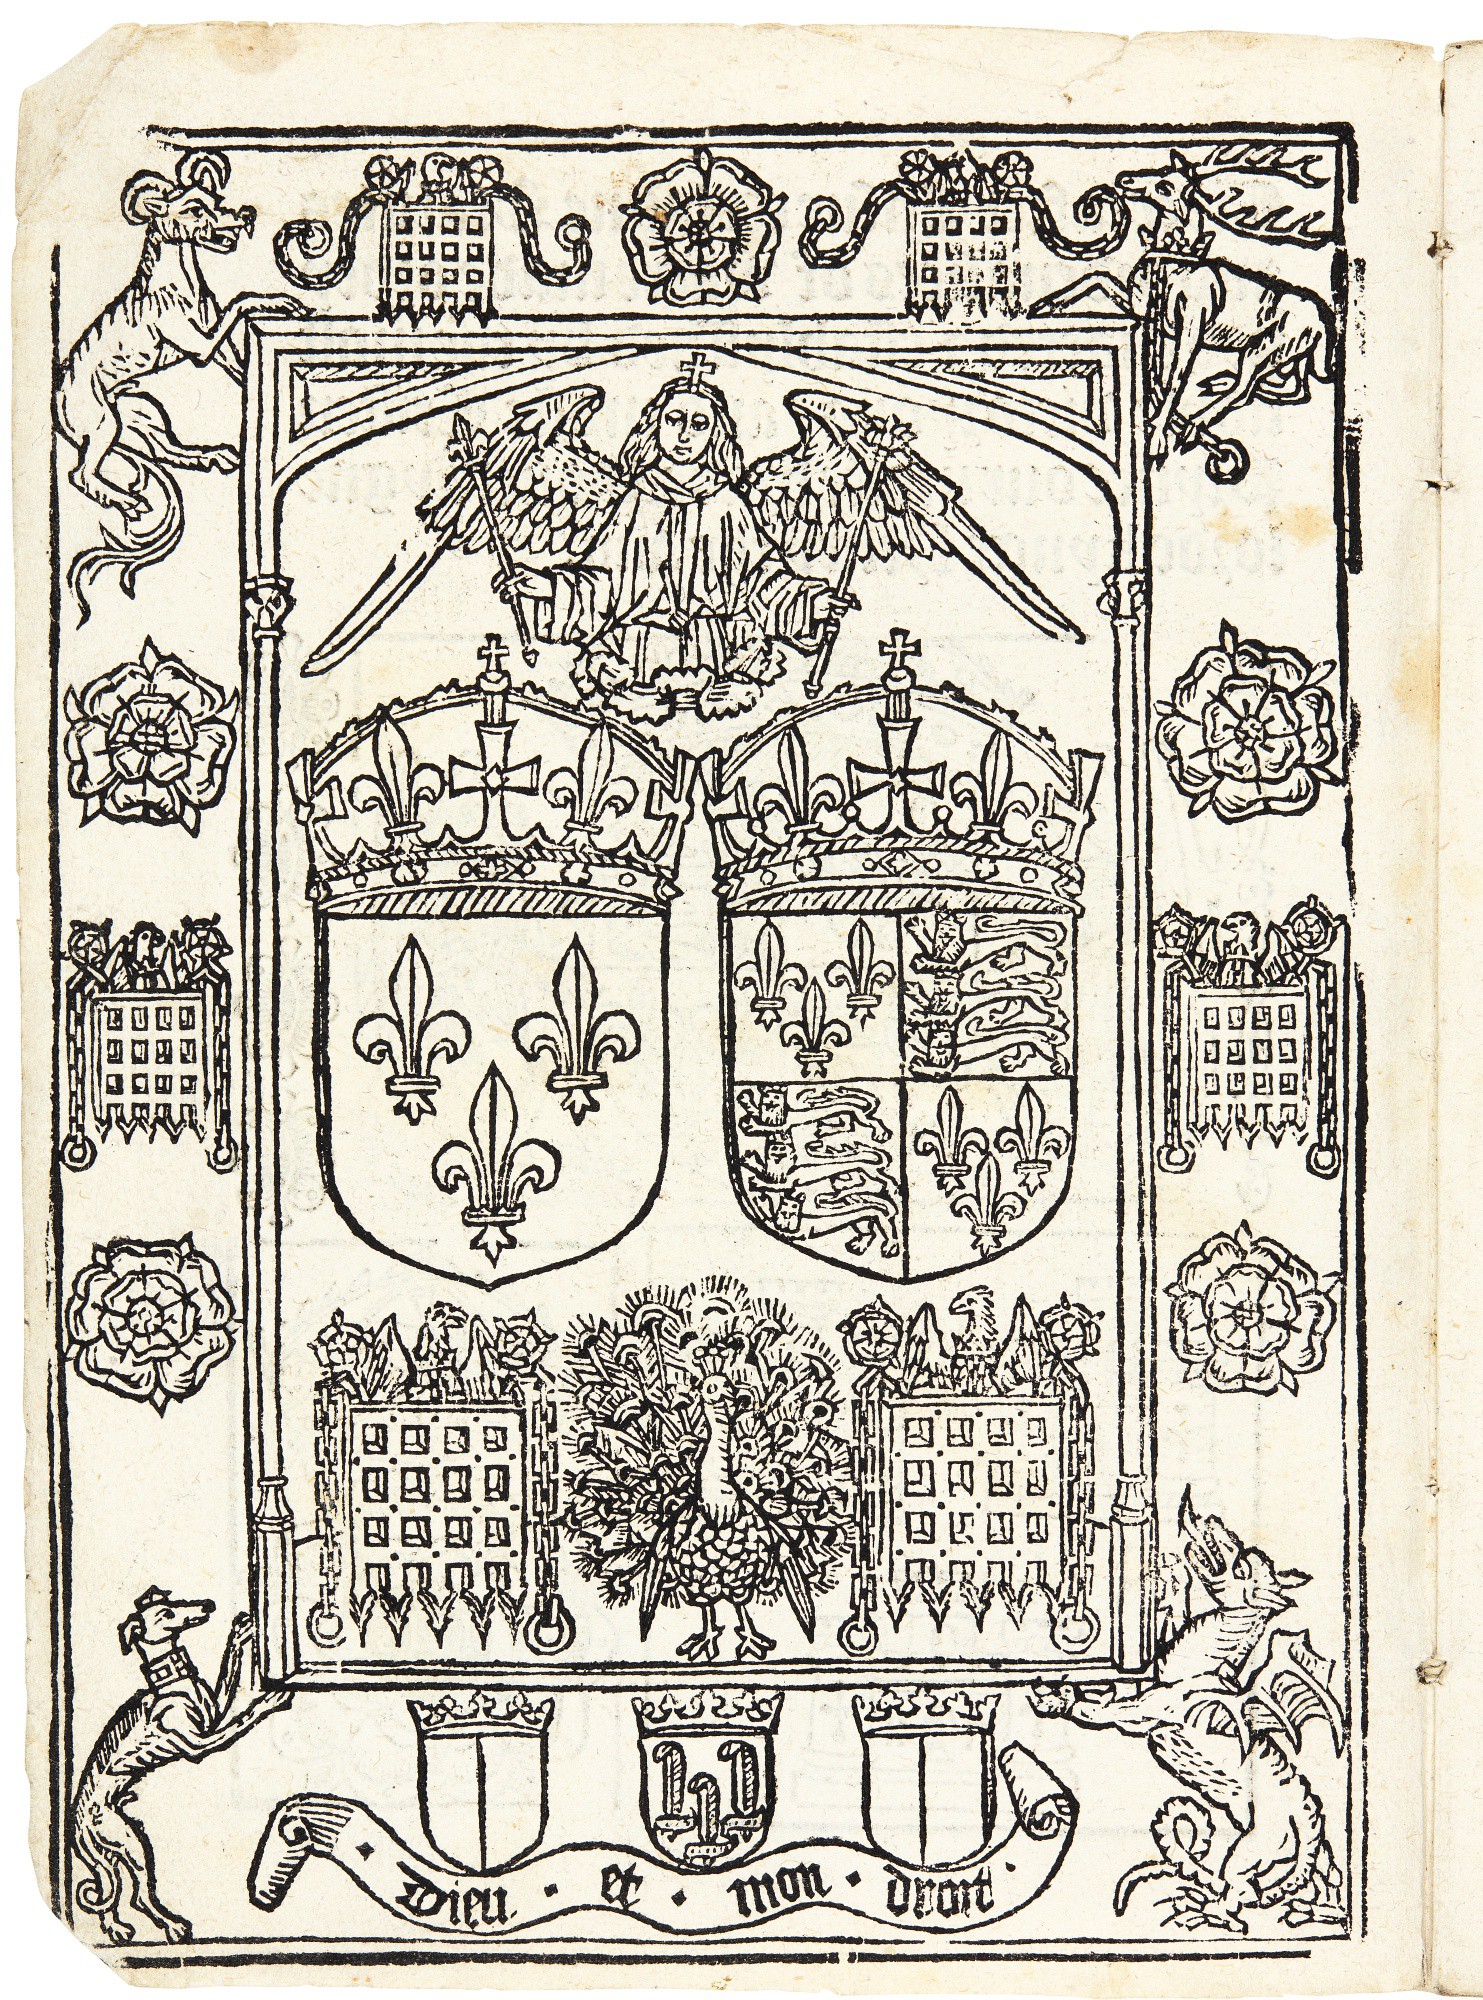 · Dieu · et · mon · droit ·